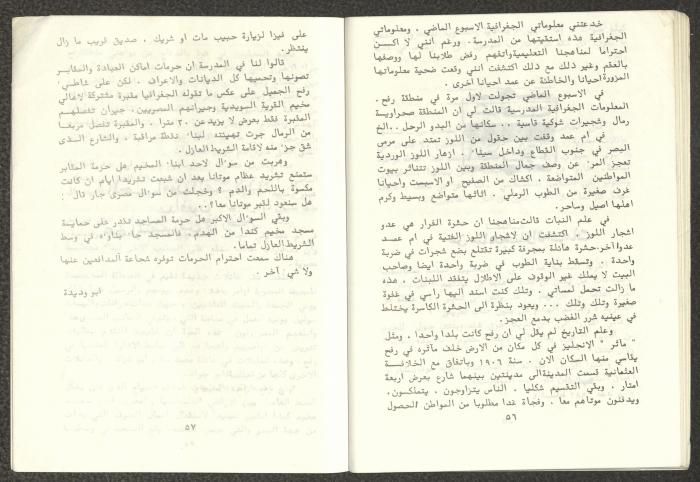 خدعتني معلوماتي الجغرافية الاسبوع الماضي . ومعلوماتي
الجغرافية هذه استقيتها من المدرسة. ورغم انني لا اكن
احتراما لمناهجنا التعليمية واتفهم رفض طلابنا لها ووصفها
بالعقم وغير ذلك مع ذلك اكتشفت انني وقعت ضحية معلوماتها
المزورة احيانا والخاطئة عن عمد احيانا اخرى .
في الاسبوع الماضي تجولت لاول مرة في منطقة رفح .
المعلومات الجغرافية المدرسية قالت لي ان المنطقة صحراوية
رمال وشجيرات شوكية قاسية .. سكانها من البدو الرحل ..الخ
في ام عمد وقفت بين حقول من اللوز تمتد على مرمى
البصر في جنوب القطاع وداخل سينا ٠ ازهار اللوز الوردية
تعجز المر٠ عن وصف جمال المنطقة وبين اللوز تتناثر بيوت
المواطنين المتواضعة ، اكشاك من الصفيح او الاسبست واحيانا
غرف صغيرة من الطوب الرملي . اثاثها متواضع وبسيط وكرم
اهلها اصيل وساحر.
في علم النبات قالت مناهجنا ان حشرة القرار هي عدو
اشجار اللوز . اكتشفت ان لاشجار اللوز الغنية في ام عمد
عدوا آخر.حشرة هائلة بمجرفة كبيرة تقتلع بضع شجرات في ضربة
واحدة . وتسقط بناية الطوب في ضربة واحدة ايضا وصاحب
البيت لا يملك غير الوقوف على الاطلال يتفقد اللبنات . هذه
ما زالت تحمل لمساتي . وتلك كنت اسند اليها رأسي في غفوة
صغيرة وتلك وتلك ... ويعود بنظرة الى الحشرة الكاسرة يختلط
في عينيه شرر الغضب بدمع العجز.
وعلم التاريخ لم يقل لي ان رفح كانت بلدا واحدا . ومثل
" مآثر " الانجليز في كل مكان من الارض خلف مآثره في رفح
يقاسي منها السكان الان . سنة ١٩٠٦ وباتفاق مع الخلافة
العثمانية قسمت المدينة الى مدينتين بينهما شارع بعرض اربعة
امتار . وبقي التقسيم شكليا . الناس يتزاوجون . يتملكون.
ويدفنون موتاهم معا . وفجأة غدا مطلوبا من المواطن الحصول
٥٦
على فيزا لزيارة حبيب مات او شريك . صديق قريب ما زال
ينتظر.
قالوا لنا في المدرسة ان حرمات اماكن العبادة والمقابر
تصونها وتحميها كل الديانات والاعراف . لكن على شاطي٠
رفح الجميل على عكس ما تقوله الجغرافيا مقبرة مشتركة لاهالي
مخيم القرية السويدية وجيرانهم المصريين. جيران تفصلهم
المقبرة فقط بعرض لا يزيد عن ٣٠ مترا . والمقبرة تفصل مربعا
من الرمال جرت تهيئته لبنا٠ نقطة مراقبة . والشارع الذى
شق جز٠ منه لاقامة الشريط العازل .
وهربت من سو٠ال لاحد ابنا٠ المخيم هل حرمة المقابر
ستمنع تشريد عظام موتانا بعد ان شبعت تشريدا ايام ان كانت
مكسوة باللحم والدم ؟ وخجلت من سو٠ال مصرى جار قال :
هل سنعود لقبر موتانا معا ؟ ..
وبقي السو٠ال الاكبر هل حرمة المساجد تقدر على حماية
مسجد مخيم كندا من الهدم. فالمسجد جا٠ بناو٠ه في وسط
الشريط العازل تماما.
هناك سمعت احترام الحرمات توفره شجاعة المدافعين عنها
ولا شي٠ آخر .
ابو وديدة
٥٧